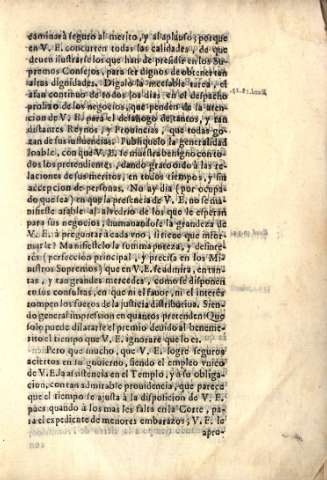 caminará seguro al merito, y al aplauso; porque
en V. E. concurren todas las calidades, de que
deuen ilustrarse los que han de presidir en los Su-
premos Consejos, para ser dignos de obtener tan
altas dignidades. Digalo la incessable tarea, el
afan continuo de todos los dias, en el despacho
prolixo de los negocios, que penden de la aten-
cion de V. E. para el desahogo de tantos, y tan
distantes Reynos, y Prouincias, que todas go-
zan de sus influencias. Publiquelo la generalidad
loable, con que V. E. se muestra benigno con to-
dos los pretendientes, dando grato oìdo à las re-
laciones de sus meritos, en todos tiempos, y sin
accepcion de personas. No ay dia (por ocupa-
do que sea) en que la presencia de V. E. no se ma-
nifieste afable al alvedrio de los que le esperan
para sus negocios, humanandose la grandeza de
V. E. à preguntar à cada vno, si tiene que infor-
marle? Manifiestelo la summa pureza, y desinte-
rès (perfeccion principal, y precisa en los Mi-
nistros Supremos) que en V. E. se admira, en tan-
tas, y tan grandes mercedes, como se disponen
en sus consultas, en que ni el fauor, ni el interés
rompen los fueros de la justicia distributiua. Sien-
do general impression en quantos pretenden: Que
solo puede dilatarse el premio deuido al beneme-
rito el tiempo que V. E. ignorare que lo es.
Pero que mucho, que V. E. logre seguros
aciertos en su gouierno, siendo el empleo vnico
de V. E. la assistencia en el Templo, y à su obliga-
cion, con tan admirable prouidencia, que parece
que el tiempo se ajusta à la disposicion de V. E.
pues quando à los mas les falta en la Corte, pa-
ra el expediente de menores embarazos; V. E. le
apro-